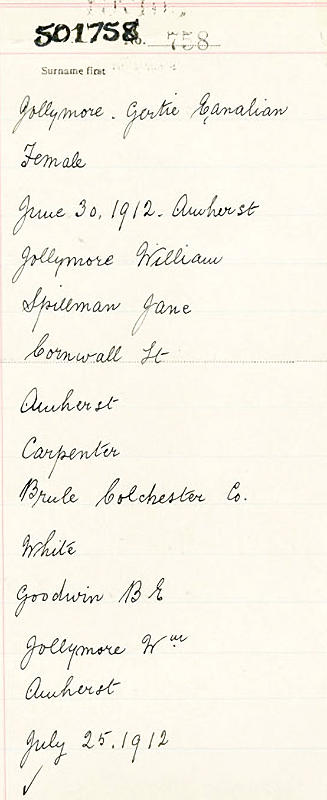 501758
No. 758
Surname first
Jollymore. Gertie
Female
June 30, 1912. Amherst
Jollymore William
Spillman Jane
Cornwall St
Amherst
Carpenter
Brule Colchester Co.
White
Goodwin B E
Jollymore Wm
Amherst
July 25, 1912